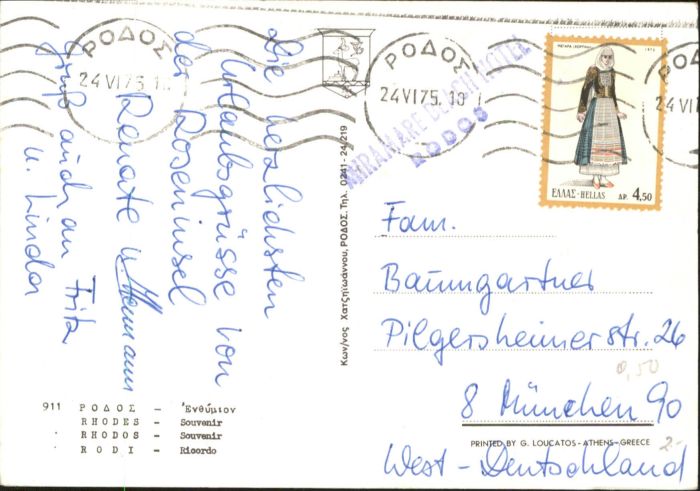 Die herzlichsten
Urlaubsgrüsse von
der Roseninsel
Renate u. Hermann
Gruß auch an Fritz
u. Linda
ΡΟΔΟΣ
24 VI 75. 10
ΡΟΔΟΣ
24 VI 75. 10
24 VI
MIRAMARE BEACH HOTEL
RODOS
ΜΕΓΑΡΑ (ΑΤΤΙΚΗΣ)
ΕΛΛΑΣ-HELLAS ΔΡ. 4,50
Κων/νος Χατζηϊωάννου, ΡΟΔΟΣ. Τηλ. 0241-24/219
Fam.
Baumgartner
Pilgersheimerstr. 26
8 München 90
West-Deutschland
0,50
2-
911 ΡΟΔΟΣ - Ἐνθύμιον
RHODES - Souvenir
RHODOS - Souvenir
RODI - Ricordo
PRINTED BY G. LOUCATOS - ATHENS - GREECE